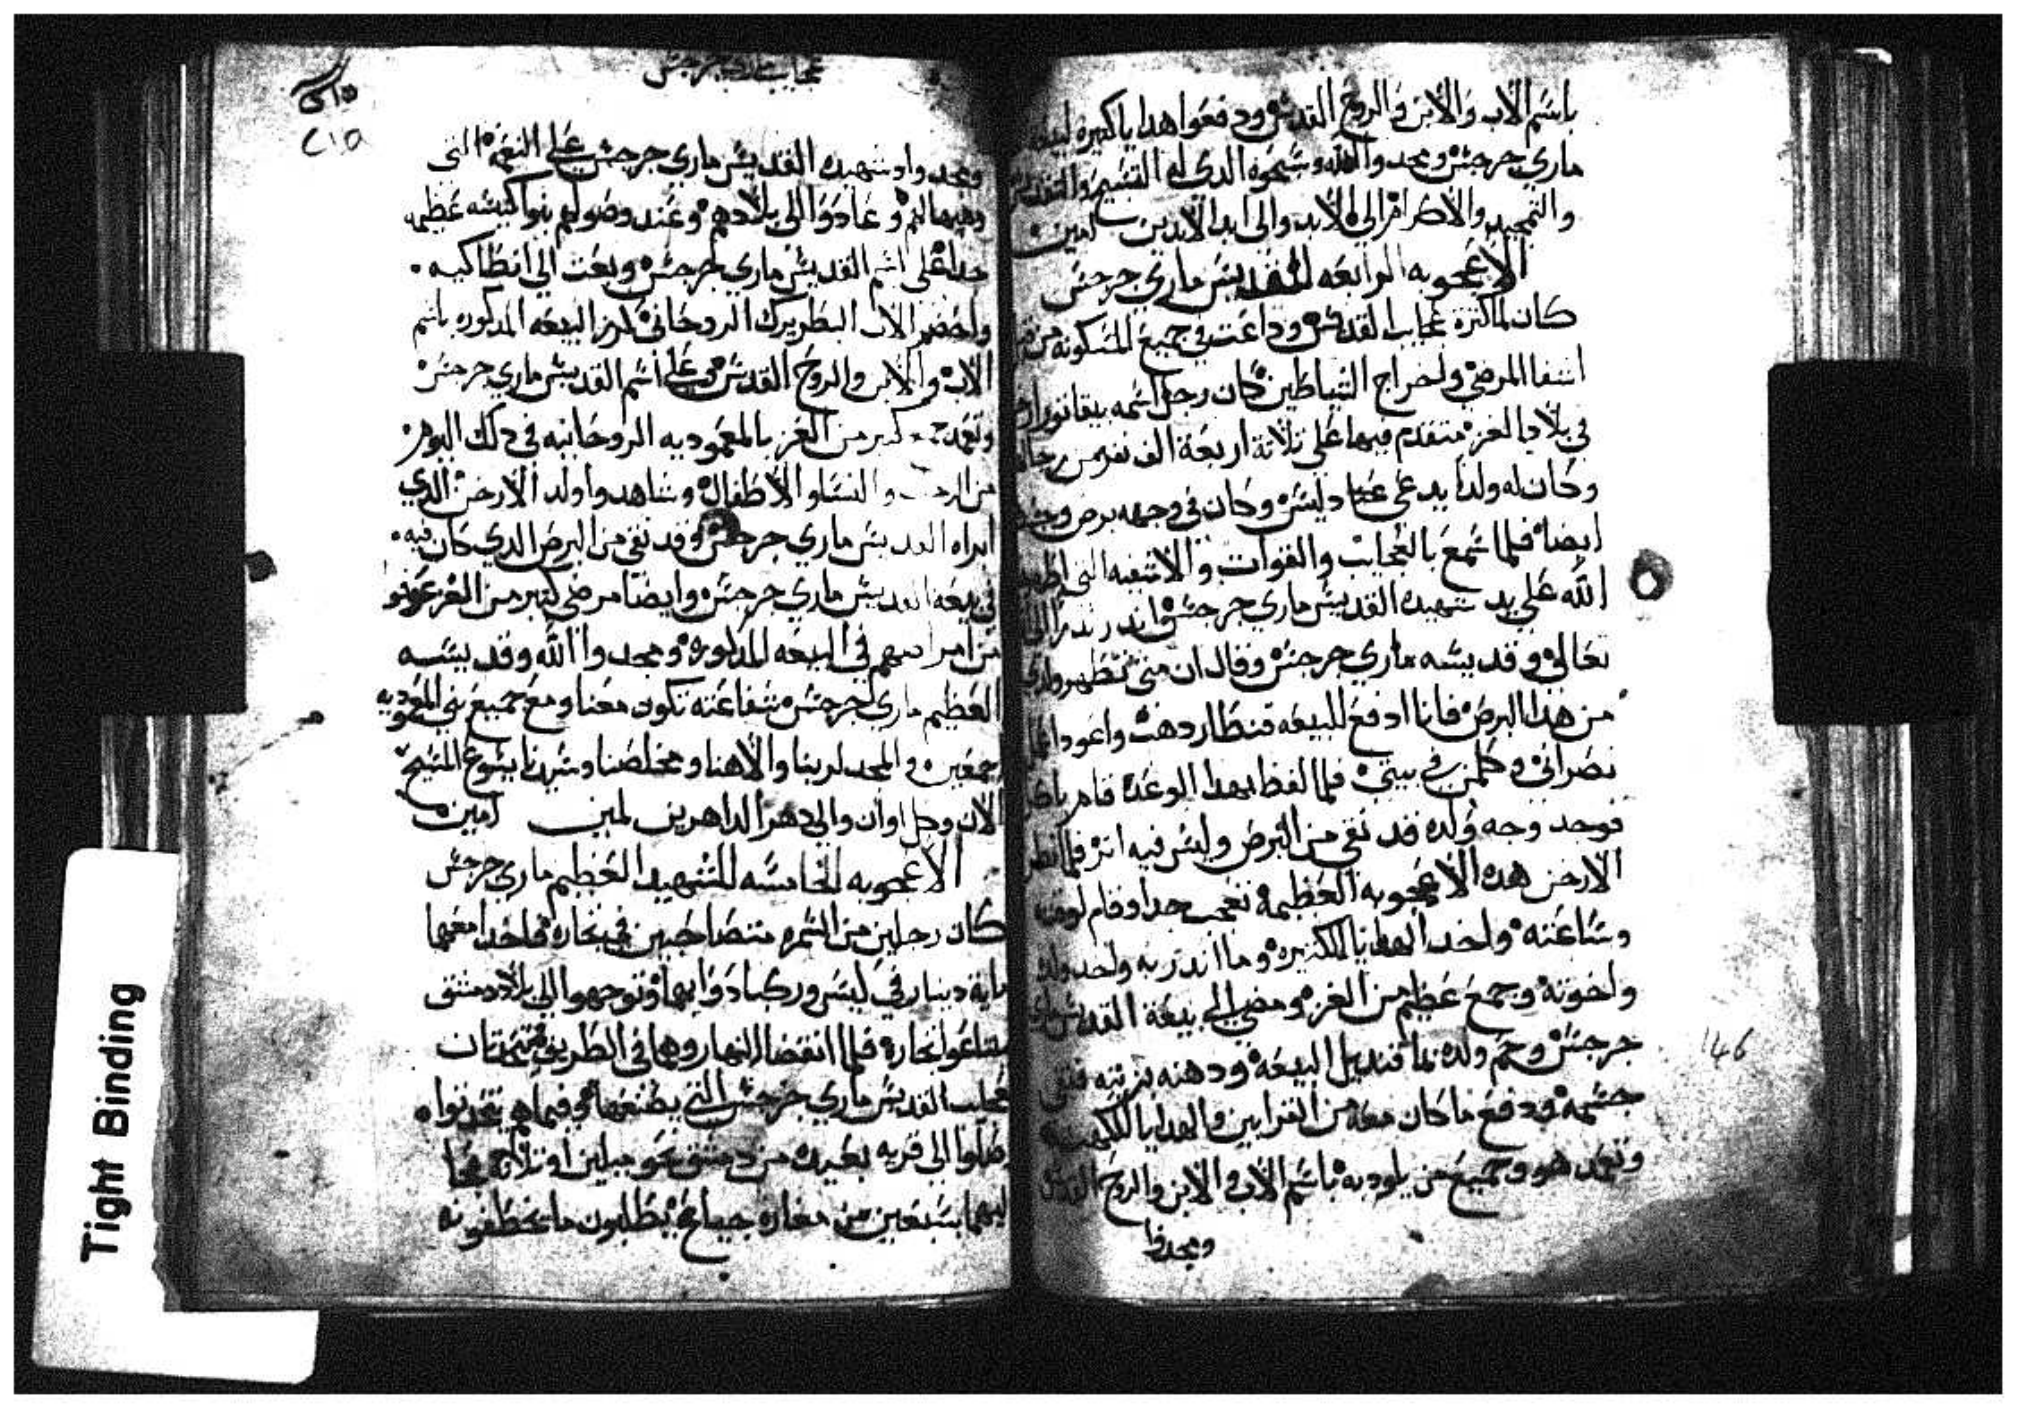 باسم الاب والابن والروح القدس ودفعوا هدايا كثيره لبيعة
ماري جرجس ومجدوا الله وسبحوه الدي له التسبيح والتقديس
والتمجيد والاكرام الى الابد والى ابد الابدين امين
الاعجوبه الرابعه للقديس ماري جرجس
كان لما كترة عجايب القديس وداعت في جميع المسكونه من
اشفا المرضي واخراج الشياطين كان رجل اسمه
في بلاد الغز متقدم فيها على تلاتة اربعة الف نفر من رجاله
وكان له ولدا يدعي وكان في وجهه برص
ايضا فلما سمع بالعجايب والقوات والاشفيه التي اظهرها
الله على يد شهيده القديس ماري جرجس اندر ندرا الى الله
تعالى وقديسه ماري جرجس وقال ان متى تطهر ولدي
من هدا البرص فانا ادفع للبيعه قنطار دهب واعود انا
نصراني وكلمن في بيتي فلما لفظ بهدا الوعد قام باكر
فوجد وجه ولده قد نقي من البرص وليس فيه اتر فلما نظر
الارخن هده الاعجوبه العظيمة تعجب جدا وقام لوقته
وساعته واخد الهدايا الكتيره وما اندر به واخد ولده
واخوته وجمع عظيم من الغز ومضي الى بيعة القديس ماري
جرجس وحم ولده بما قنديل البيعة ودهنه بزيته فنقي
جسمه ودفع ما كان معه من القرابين والهدايا للكهنه
وتعمد هو وجميع من يلود به باسم الاب والابن والروح القدس
ومجدوا
عجايب ماري جرجس
٢١٥
ومجدوا شهيده القديس ماري جرجس على النعمة التي
وهبها لهم وعادوا الى بلادهم وعند وصولهم بنوا كنيسه عظيمه
جدا على اسم القديس ماري جرجس وبعت الى انطاكيه
واحضر الاب البطريرك الروحاني كرز البيعه المدكوره باسم
الاب والابن والروح القدس وعلى اسم القديس ماري جرجس
وتعمد جمع كبير من الغز بالمعموديه الروحانيه في دلك اليوم
من الرجال والنسا والاطفال وشاهدوا ولد الارخن الدي
ابراه القديس ماري جرجس وقد نقي من البرص الدي كان فيه
في بيعة القديس ماري جرجس وايضا مرضي كتير من الغز عوفوا
من امراضهم في البيعه المدكوره ومجدوا الله وقديسه
العظيم ماري جرجس شفاعته تكون معنا ومع جميع بني المعموديه
اجمعين والمجد لربنا والاهنا ومخلصنا وسيدنا يسوع المسيح
الان وكل اوان والى دهر الداهرين امين امين
الاعجوبه الخامسه للشهيد العظيم ماري جرجس
كان رجلين من السمره متصاحبين في تجاره فاخدا معهما
ماية دينار في كيس وركبا دوابهما وتوجهوا الى بلاد دمشق
يبتاعوا تجاره فلما انقضا النهار وهما في الطريق
عجايب القديس ماري جرجس التي يصنعها وفيما هم يتحدتوا
وصلوا الى قريه بعيده من دمشق نحو ميلين او تلاته
اليهما بسبعين من مغاره جياع يطلبون ما يخطفونه
146
Tight Binding